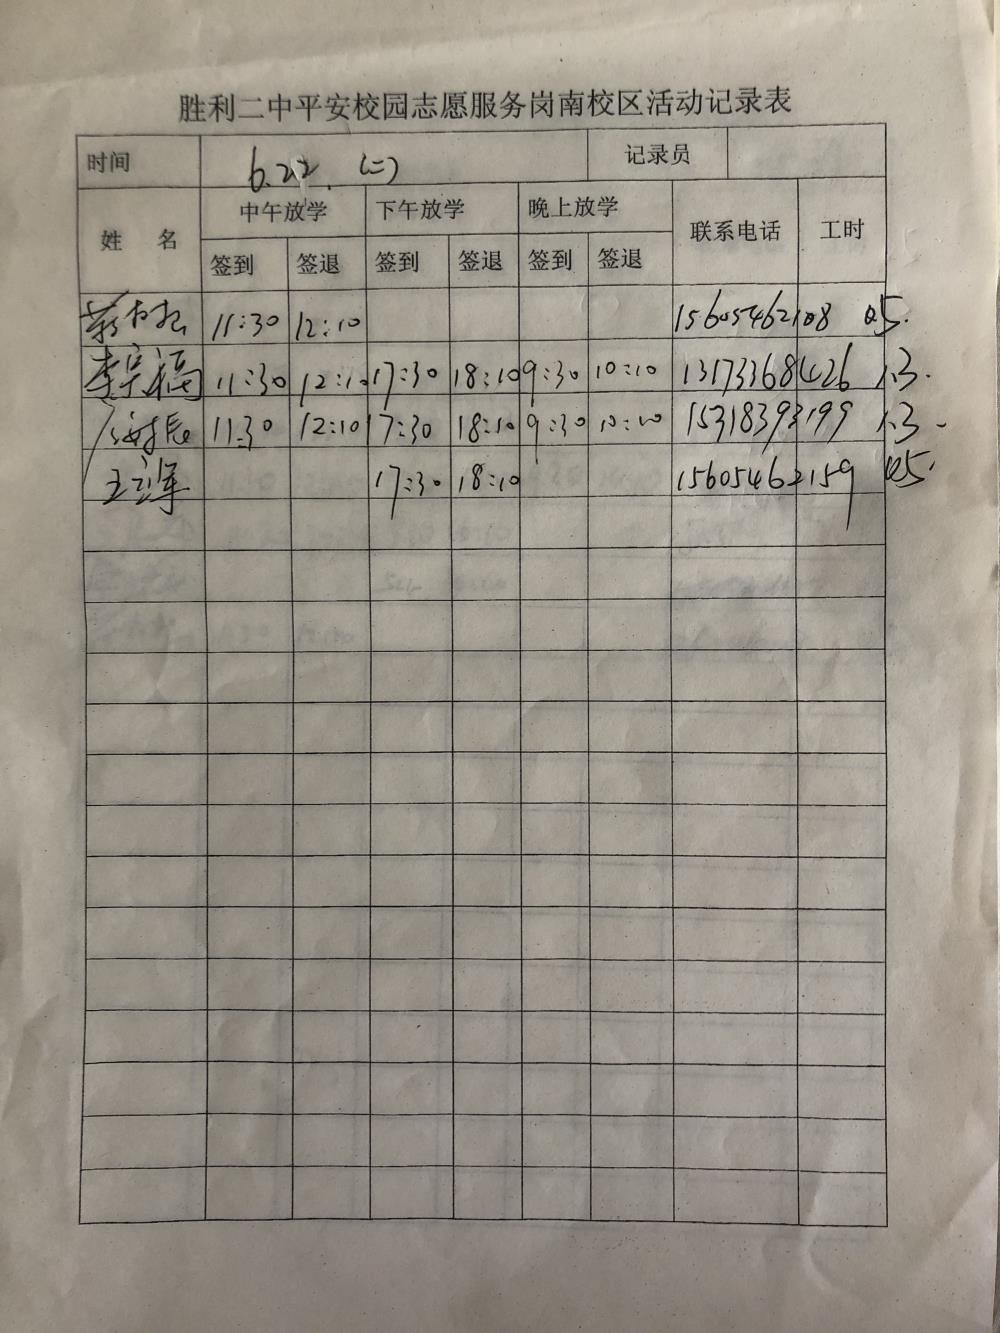 胜利二中平安校园志愿服务岗南校区活动记录表
时间 6.22. (二) 记录员
姓 名 中午放学 下午放学 晚上放学 联系电话 工时
签到 签退 签到 签退 签到 签退
11:30 12:10 15605462108 0.5.
李宗福 11:30 12:10 17:30 18:10 9:30 10:10 13173368426 1.3.
11:30 12:10 17:30 18:10 9:30 10:10 15318393199 1.3.
王立军 17:30 18:10 15605462159 0.5.